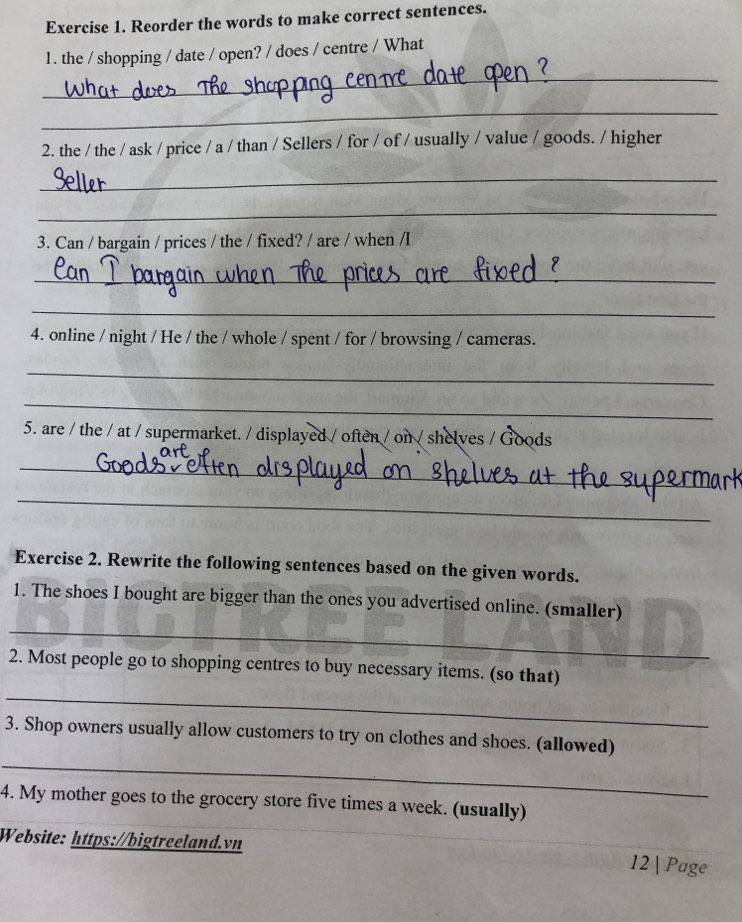 Exercise 1. Reorder the words to make correct sentences.
1. the / shopping / date / open? / does / centre / What
What does The shopping centre date open ?
2. the / the / ask / price / a / than / Sellers / for / of / usually / value / goods. / higher
Seller
3. Can / bargain / prices / the / fixed? / are / when /I
Can I bargain when The prices are fixed ?
4. online / night / He / the / whole / spent / for / browsing / cameras.
5. are / the / at / supermarket. / displayed / often / on / shelves / Goods
Goods are often displayed on shelves at the supermark
Exercise 2. Rewrite the following sentences based on the given words.
1. The shoes I bought are bigger than the ones you advertised online. (smaller)
BIGTREE LAND
2. Most people go to shopping centres to buy necessary items. (so that)
3. Shop owners usually allow customers to try on clothes and shoes. (allowed)
4. My mother goes to the grocery store five times a week. (usually)
Website: https://bigtreeland.vn
12 | Page